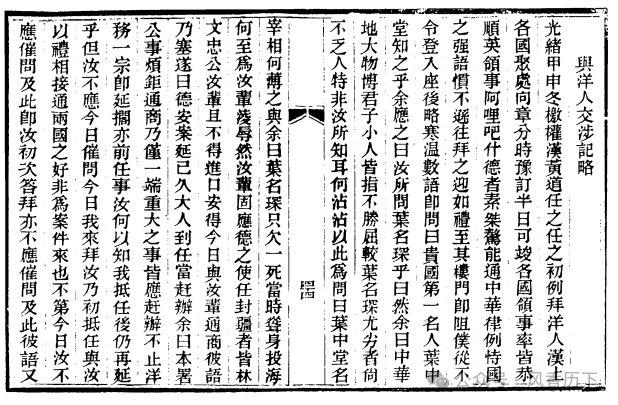 與洋人交涉記略
光緒甲申冬檄權漢黃道任之任之初例拜洋人漢上
各國聚處向章分時豫訂半日可竣各國領事率皆恭
順英領事阿哩吧什德者素桀驁能通中華律例恃國
之强語慣不遜往拜之迎如禮至其樓門卽阻僕從不
令登入座後略寒温數語卽問曰貴國第一名人葉中
堂知之乎余應之曰汝所問葉名琛乎曰然余曰中華
地大物博君子小人皆指不勝屈較葉名琛尤劣者尙
不乏人特非汝所知耳何沾沾以此爲問曰葉中堂名
宰相何薄之與余曰葉名琛只欠一死當時聳身投海
何至爲汝輩淩辱然汝輩固應德之使任封疆者皆林
文忠公汝輩且不得進口安得今日與汝輩通商彼語
乃塞遂曰德安案延已久大人到任當赶辦余曰本署
公事煩鉅通商乃僅一端重大之事皆應赶辦不止洋
務一宗卽延擱亦前任事汝何以知我抵任後仍再延
乎但汝不應今日催問今日我來拜汝乃初抵任與汝
以禮相接通兩國之好非爲案件來也不第今日汝不
應催問及此卽汝初次答拜亦不應催問及此彼語又
公众号·风香历下